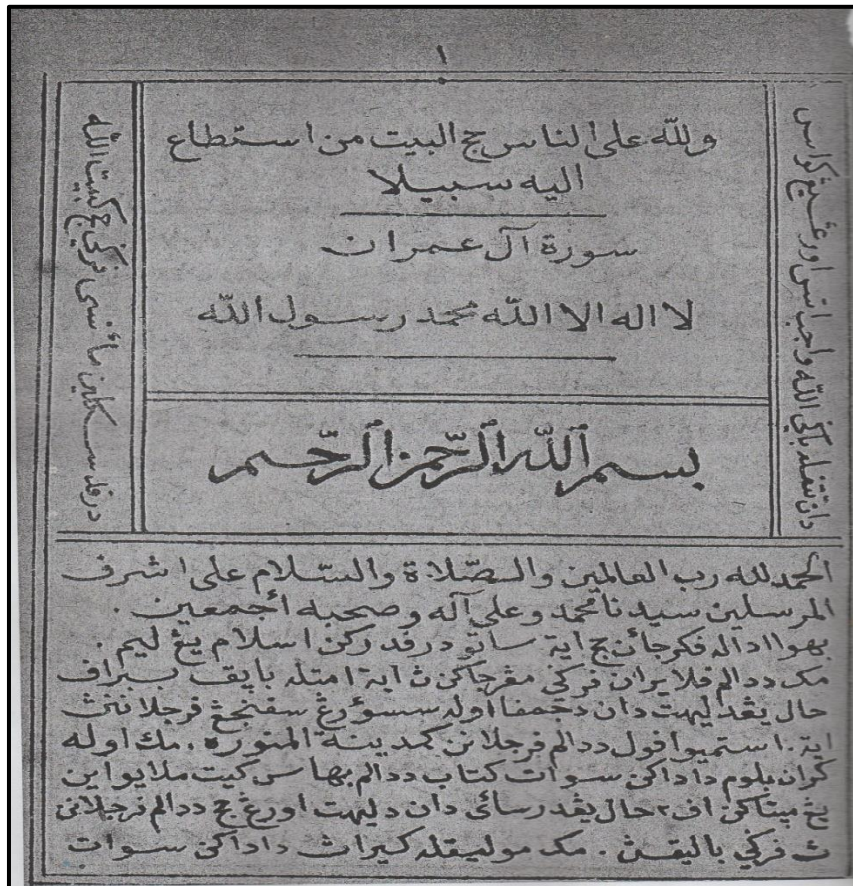 ١
ولله على الناس حج البيت من استطاع
اليه سبيلا
سورة آل عمران
لا اله الا الله محمد رسول الله
دان تتفله باكي الله واجب اتس اورڠ يڠ كواس
درفد سكلين مأنسي فركي حج كبيت الله
بسم ٱلله ٱلرّحمن ٱلرّحيم
الحمد لله رب العالمين والصّلاة والسّلام على اشرف
المرسلين سيدنا محمد وعلى آله وصحبه أجمعين.
بهوا اداله فكرجائن حج اية ساتو درفد ركن اسلام يڠ ليم.
مك ددالم فلايران فركي مڠرجاكن ث اية امتله بايق ببراف
حال يڠد ليهت دان دجمفا اوله سسؤرڠ سفنجڠ فرجلانن ث
ايت. استميوا فول ددالم فرجلانن كمدينة المنوره. مك اوله
كران بلوم داداكن سوات كتاب ددالم بهاس كيت ملايو اين
يڠ ميتاكن اف٢ حال يڠد رسائى دان دليهت اورڠ حج ددالم فرجلانن
ث فركي باليقث. مك موليقله كيراث داداكن سوات